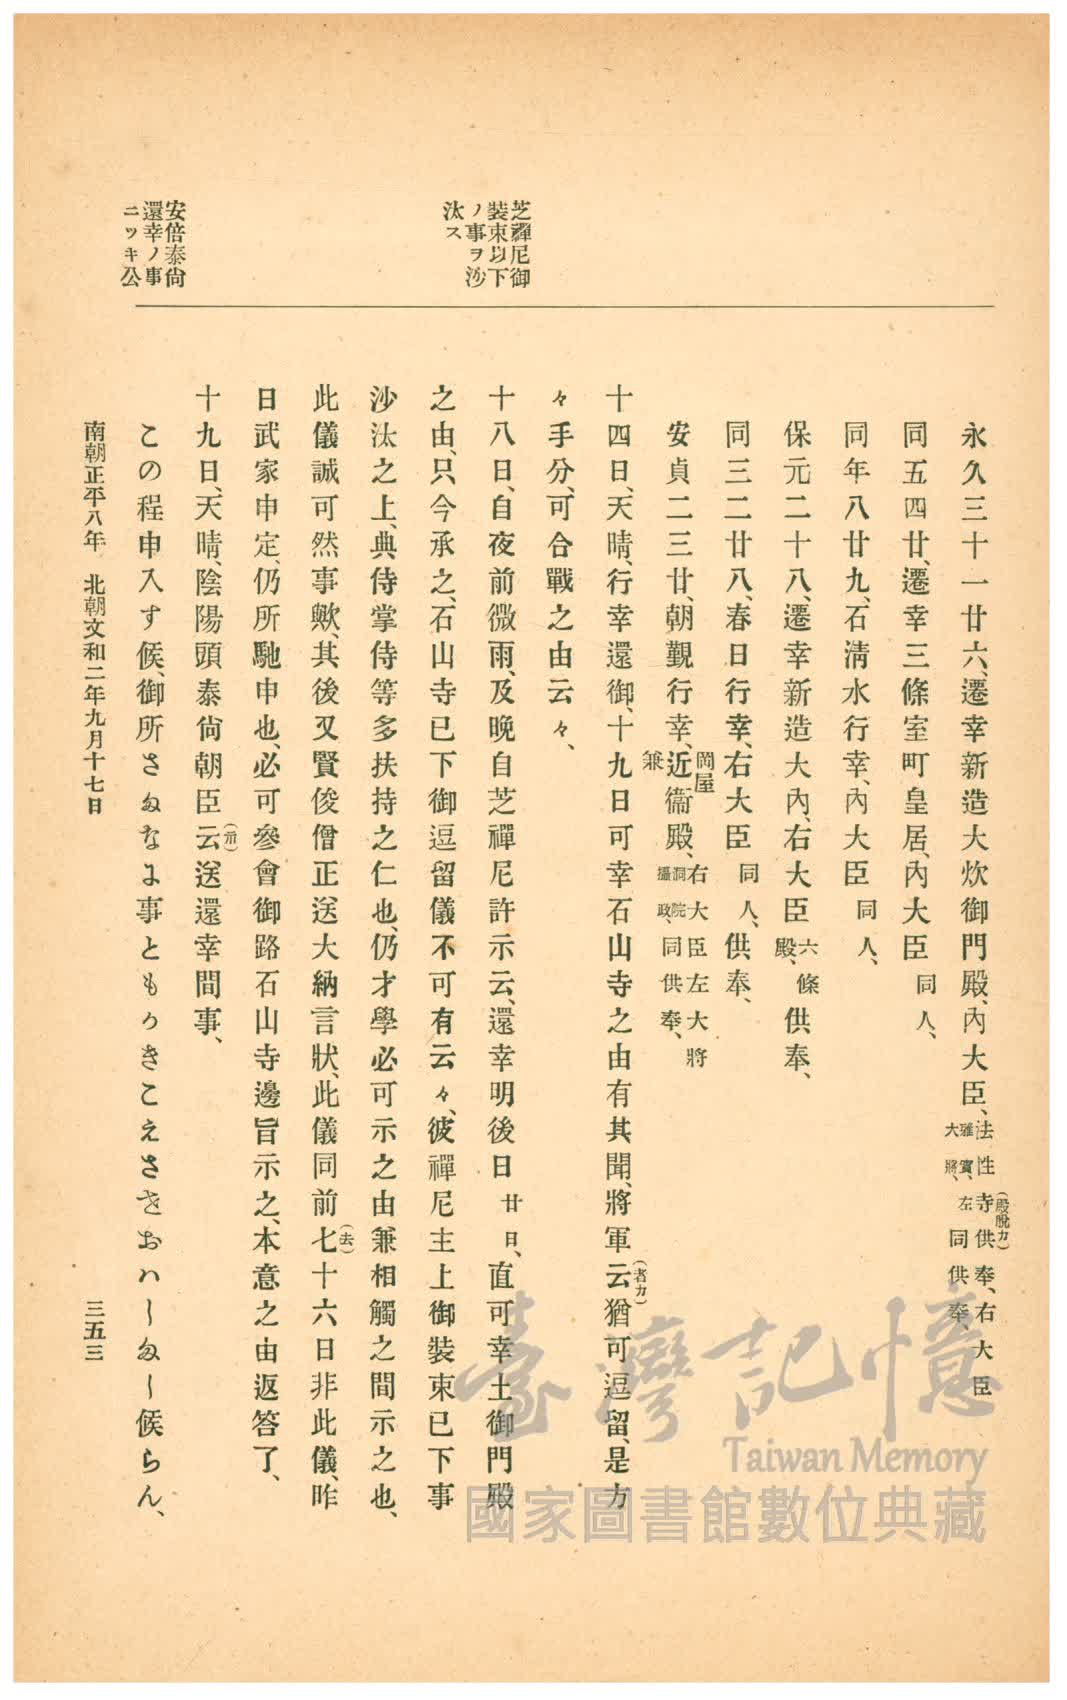 芝禪尼御
裝束以下
ノ事ヲ沙
汰ス
安倍泰尙
還幸ノ事
ニツキ公
永久三十一廿六、遷幸新造大炊御門殿、內大臣、法性寺(殿脫カ)供奉、右大臣雅實、左大將、同供奉、
同五四廿、遷幸三條室町皇居、內大臣同人、
同年八廿九、石淸水行幸、內大臣同人、
保元二十八、遷幸新造大內、右大臣六條殿、供奉、
同三二廿八、春日行幸、右大臣同人、供奉、
安貞二三廿、朝覲行幸、近衞殿、岡屋兼右大臣左大將洞院攝政、同供奉、
十四日、天晴、行幸還御、十九日可幸石山寺之由有其聞、將軍云(者カ)猶可逗留、是方
々手分、可合戰之由云々、
十八日、自夜前微雨、及晚自芝禪尼許示云、還幸明後日廿日、直可幸土御門殿
之由、只今承之、石山寺已下御逗留儀不可有云々、彼禪尼主上御裝束已下事
沙汰之上、典侍掌侍等多扶持之仁也、仍才學必可示之由兼相觸之間示之也、
此儀誠可然事歟、其後又賢俊僧正送大納言狀、此儀同前、七(去)十六日非此儀、昨
日武家申定、仍所馳申也、必可參會御路石山寺邊旨示之、本意之由返答了、
十九日、天晴、陰陽頭泰尙朝臣云(示)送還幸間事、
この程申入す候、御所さぬなに事ともうきこえささおハしぬし候らん、
南朝正平八年 北朝文和二年九月十七日
三五三
臺灣記憶
Taiwan Memory
國家圖書館數位典藏